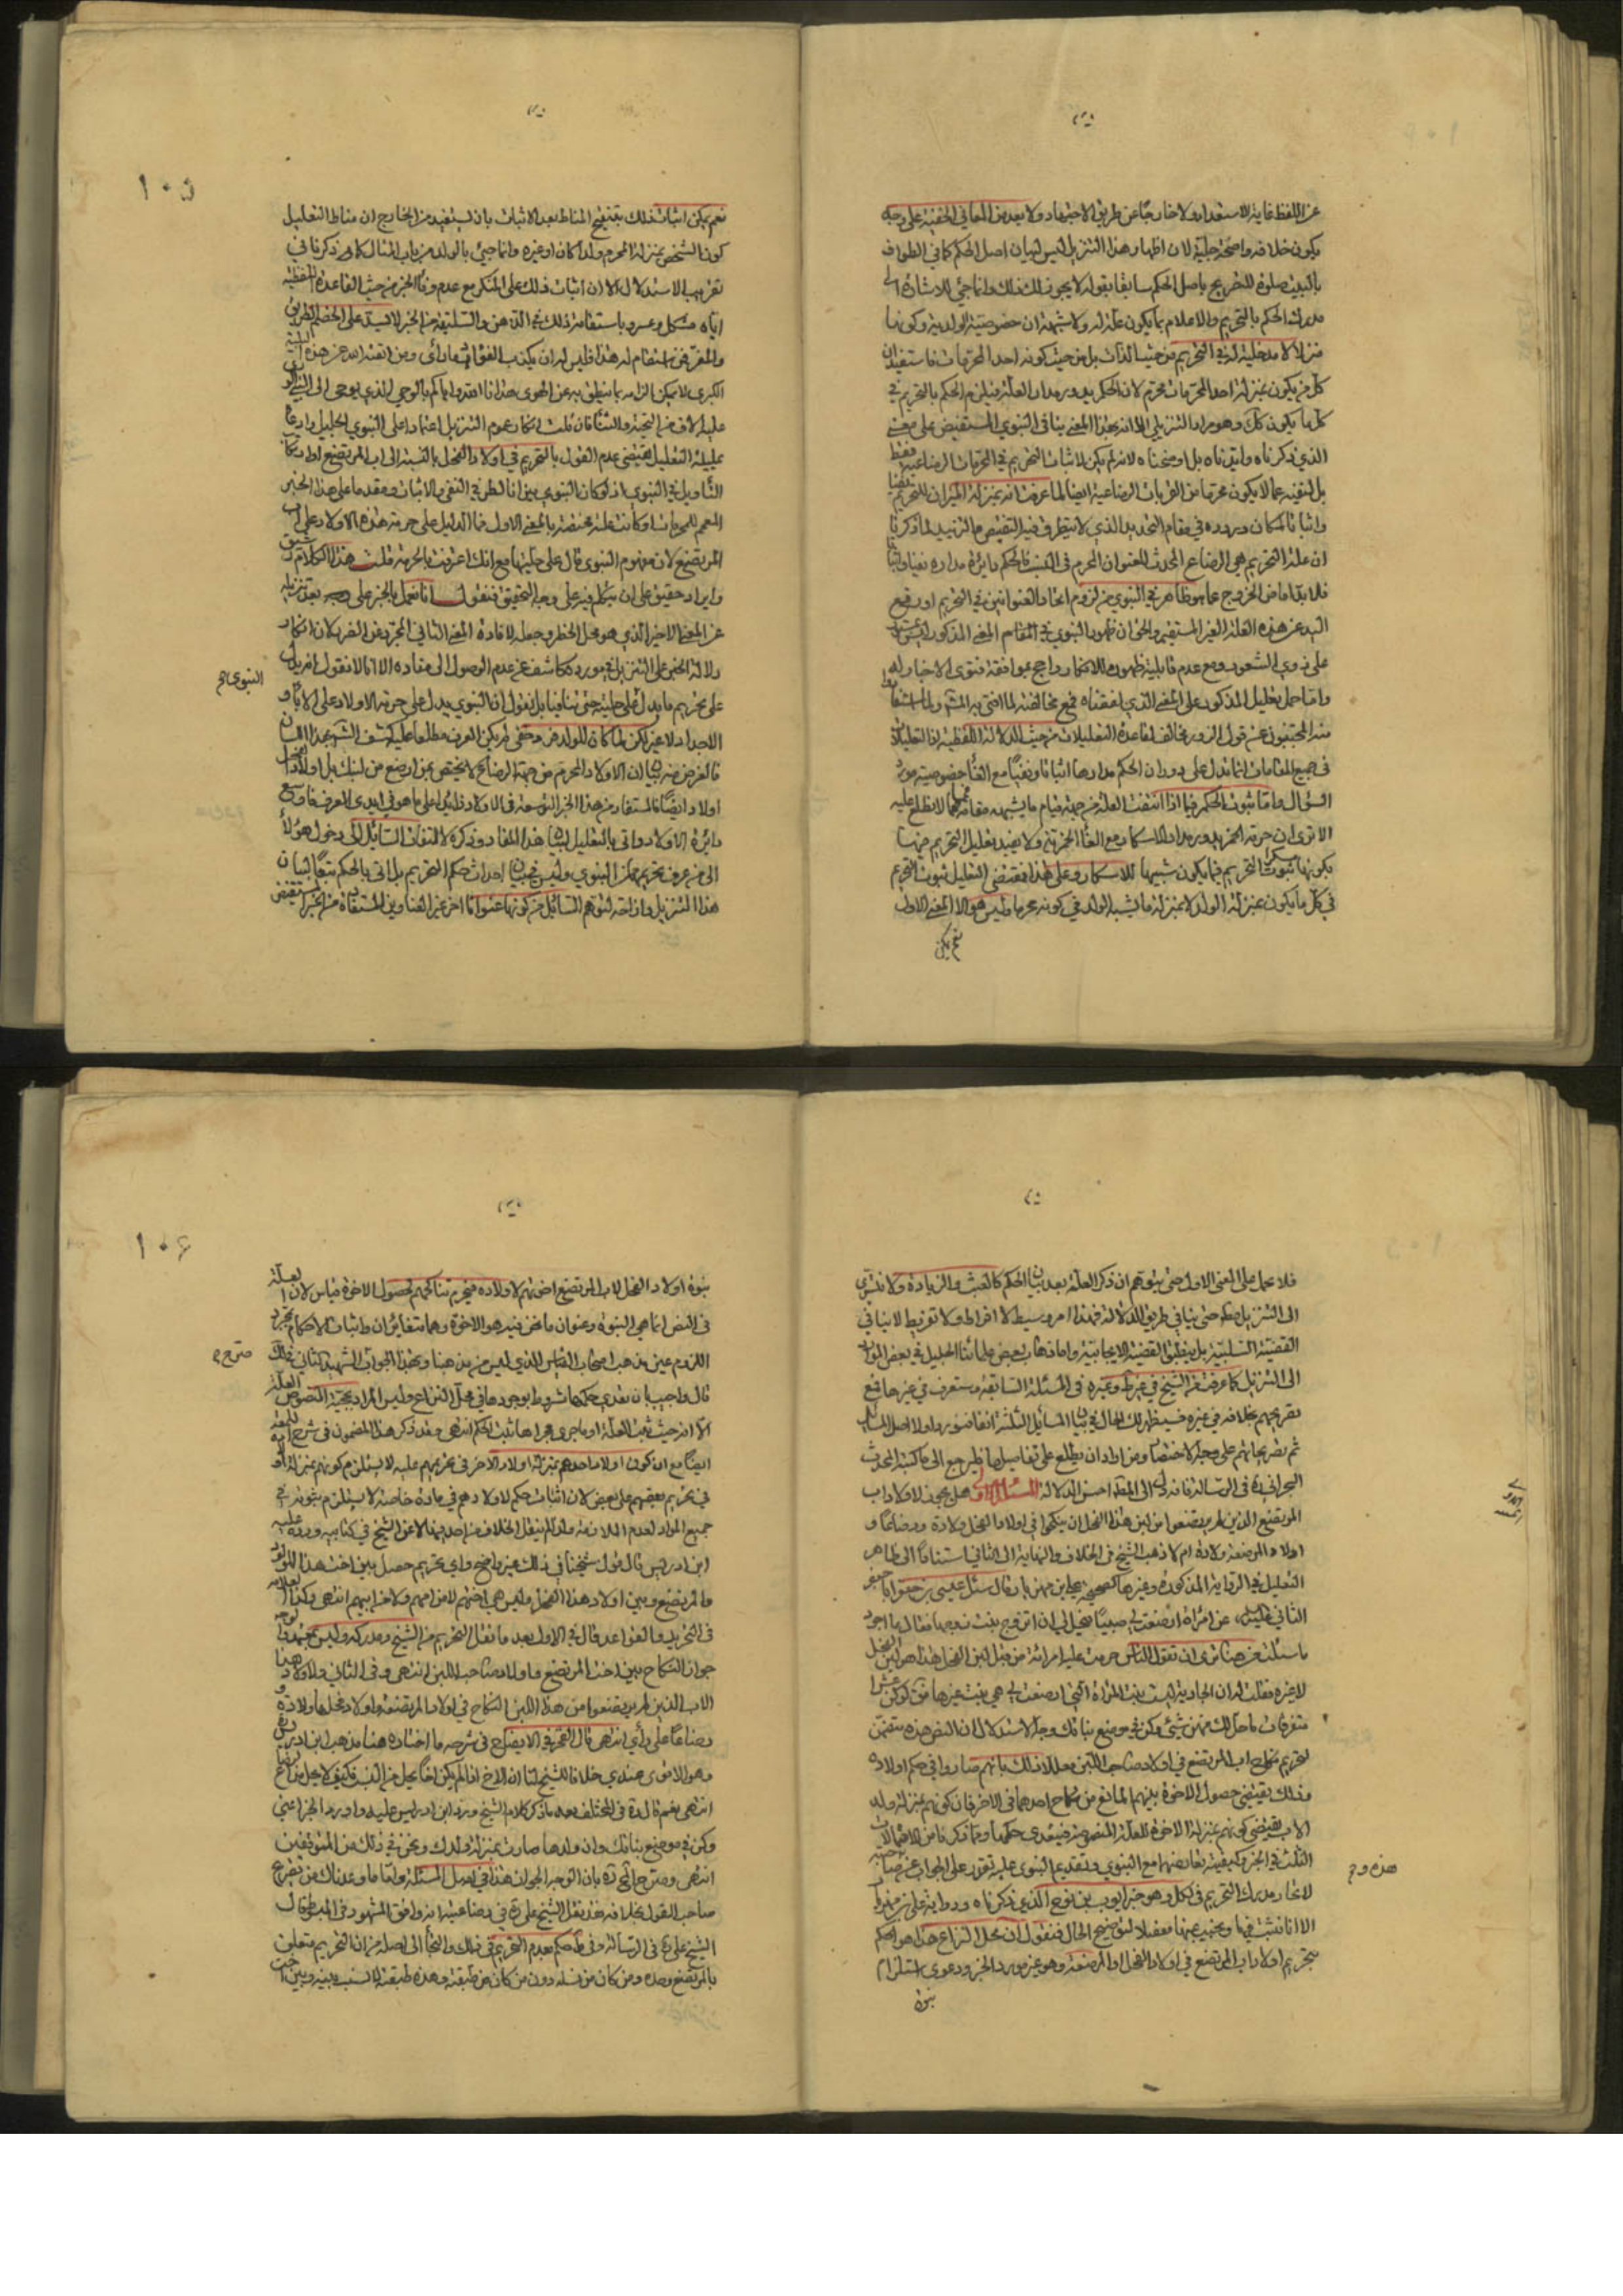 عن اللفظ غاية الاستعداد ولا خارجا عن طريق الاجتهاد ولا بعد من المعاني الخفية على وجه
يكون خلافه واضحة جلية لان اظهار هذا التنزيل ليس لبيان اصل الحكم كما في الطواف
بالبيت صلوة للتصريح باصل الحكم سابقا بقوله لا يجوز لك ذلك وانما جئ للاشارة الى
مدرك الحكم بالتحريم والاعلام بما يكون علة له ولا شبهة ان خصوصية الولدية وكونها
منزلا لا مدخلية له في التحريم من حيث الذات بل من حيث كونه احد المحرمات فاستفيد ان
كل من يكون بمنزلة احد المحرمات محرم لان الحكم يدور مدار العلة فيلزم الحكم بالتحريم في
كل ما يكون كك وهو مراد التنزيلي الا انه بهذا المعنى ينافي النبوي المستفيض على معنى
الذي ذكرناه وايقناه بل اوضحناه لانه لم يكن لاثبات التحريم في المحرمات الرضاعية فقط
بل لنفيه عما لا يكون محرما من القرابات الرضاعية ايضا لما عرفت انه بمنزلة الميزان للتحريم نفيا
واثباتا لمكان وروده في مقام التحديد الذي لا يتطرق فيه التنقيص والتزييد لما ذكرنا
ان علة التحريم هي الرضاع المحدث للعنوان المحرم في النسب فالحكم دائرة مداره نفيا واثباتا
فلا بد اما من الخروج عما هو ظاهر في النبوي من لزوم اتحاد العنوانين في التحريم او رفع
اليد عن هذه العلة الغير المستقيم والحق ان ظهور النبوي في المقام المعنى المذكور ليس بمستور
على ذوي الشعور ومع عدم قابلية ظهوره للانكار راجح بموافقة فتوى الاخيار وله
واما حمل تعليل المذكور على المعنى الذي لفقناه فمع مخالفته لما افتى به المشهور
منه المجتنبون عن قول الزور مخالف لقاعدة التعليلات من حيث الدلالة اللفظية اذ التعليلات
في جميع المقامات انما تدل على دوران الحكم مدارها اثباتا ونفيا مع الغاء خصوصية مورد
السؤال واما ثبوت الحكم فيما اذا انتفت العلة من جهة قيام ما يشبهه مقامه فمما لا نطلع عليه
الا ترى ان حرمة الخمر يدور مدار الاسكار مع الغاء الخمرية ولا يفيد تعليل التحريم فيها
بكونها مسكر ثبوت التحريم فيما يكون شبيها للاسكار وعلى هذا فمقتضى التعليل ثبوت التحريم
في كل ما يكون بمنزلة الولد لا بمنزلة ما يشبه الولد في كونه محرما وليس هو الا المعنى الاول
نعم يكن
١٠٥
نعم يمكن اثبات ذلك بتنقيح المناط بعد الاثبات بان يستفيد من الخارج ان مناط التعليل
كون الشخص بمنزلة المحرم ولدا كان او غيره وانما جيئ بالولد من باب المثال كما مر ذكرنا في
تقريب الاستدلال الا ان اثبات ذلك على المنكر مع عدم وفاء الخبر من حيث القاعدة اللفظية
اياه مشكل وعسر وباستقامة ذلك في الذهن والسليقة من الخبر لا يسد على الخصم الطريق
والمفر فمن استقام له هذا فليس له ان يكذب الفؤاد ما رأى ومن اتقنه الله عن هذه البلية
الكبرى لا يمكن الزامه بما ينطق به عن الهوى هذانا الله واياكم بالوحي الذي يوحى الى النبي
عليه الاف من التحية والثناء فان قلت انكار عموم التنزيل اعتمادا على النبوي الجليل وادعاء
عليلة التعليل يقتضي عدم القول بالتحريم في اولاد الفحل بالنسبة الى اب المرتضع
التأويل في النبوي اذ لو كان النبوي ميزانا للطرفي النفي والاثبات ومقدما على هذا الخبر
المعمم للمحرمات وكانت علته مختصة بالمعنى الاول فما الدليل على حرمة هذه الاولاد على اب
المرتضع لان مفهوم النبوي دال على حليتها مع انك اعترفت بالحرمة قلت هذا الكلام
وايراد حقيق على ان يتكلم فيه على وجه التحقيق فنقول انا نعمل بالخبر على وجه بعد تنزيله
عن المعنى الاخير الذي هو محل الخطر وجعله لافادة المعنى الثاني المجرد عن الضرر لان انكار
دلالة الخبر على التنزيل في مورده كاشف عن عدم الوصول الى مفاده الا انا لا نقول انه يدل
على تحريم ما يدل على حليته حتى يتنافيا بل نقول ان النبوي يدل على حرمة الاولاد على الاباء و
النبوي صح
الاجداد لا غير لكن لما كان للولد فرد خفي لم يكن العرف مطلعا عليه كشف الشرع
فالغرض منه بيان ان الاولاد المحرم من جهة الرضاع لا يختص بمن ارضع من لبنك بل اولاد
اولاد ايضا فالمستفاد من هذا الخبر التوسعة في الاولاد زائدا على ما هو في ايدي العرف فاوسع
دائرة الاولاد واتى بالتعليل لبيان هذا المفاد وذكره لالتفات السائل الى دخول هؤلاء
الى من عرف تحريمهم من النبوي وليس في بيان احداث حكم التحريم بل اتى بالحكم تبعا لبيان
هذا التنزيل وازاحة لتوهم السائل من كونها عنوانا اخر غير العناوين المستفادة من الخبر المستفيض
فلا عمل على المعنى الاول حتى يتوهم ان ذكر العلة بعد بيان الحكم كالعبث والزيادة ولا نتسرى
الى التنزيل مطلقا حتى ينافي طريق الدلالة فهذا امر وسيط لا افراط ولا تفريط لا ينافي
القضية السلبية بل ينطبق القضية الايجابية واما ذهاب بعض علمائنا الجليل في بعض الموارد
الى التنزيل كما عرفت من الشيخ في وغيره في المسئلة السابقة وستعرف في غيرها فمع
تصريحهم بخلافه في غيره فسيظهر لك الحال في بيان المسائل الثلثة انفا فنورد اولا اصل المسائل
ثم تصريحاتهم على وجه الاختصار ومن اراد ان يطلع على تفاصيلها فليرجع الى ما كتبه المحدث
البحراني ره في الرسالة فانه دل الى المقصد احسن الدلالة المسئلة الاولى هل يجوز لاولاد اب
المرتضع الذين لم يرتضعوا من لبن هذا الفحل ان ينكحوا في اولاد الفحل ولادة ورضاعا و
اولاد المرضعة ولادة ام لا ذهب الشيخ في الخلاف والنهاية الى الثاني استنادا الى ظاهر
التعليل في الرواية المذكورة وغيرها كصحيحة علي ابن مهزيار قال سئل عيسى بن جعفر ابا جعفر
الثاني عليه السلام عن امراة ارضعت لي صبيا فهل يحل لي ان اتزوج بنت زوجها فقال ما اجود
ما سئلت من هنا يؤتى ان تقول الناس حرمت عليه امراته من قبل لبن الفحل هذا هو لبن الفحل
لا غيره فقلت له ان الجارية ليست بنت المراة التي ارضعت لي هي بنت غيرها فقال لو كن عشرا
متفرقات ما حل لك منهن شئ وكن في موضع بناتك وجه الاستدلال ان النص هذه يتضمن
تحريم نكاح اب المرتضع في اولاد صاحب اللبن معللا ذلك بانهم صاروا في حكم اولاده
وذلك يقتضي حصول الاخوة بينهم المانع من نكاح احدهما في الاخر فان كونهم بمنزلة ولد
الاب يقتضي كونهم بمنزلة الاخوة للعلة المنصوصة فيتعدى حكمها وما ذكرنا من الاحتمالات
الثلث في الخبر وكيفية تعارضهما مع النبوي وتقديم النبوي عليه تقدر على الجواب عن صاحبيه
هذه وح
لاتحاد مدرك التحريم في كل وهو خبر ايوب بن نوح الذي ذكرناه ورواية علي بن مهزيار
الا انا نثبت فيهما وعنهما مفصلا لتوضيح الحال فنقول ان محل النزاع هذا هو الحكم
بتحريم اولاد اب المرتضع في اولاد الفحل او المرضعة وهو غير مورد الخبر ودعوى استلزام
بنوة
١٠٦
بنوة اولاد الفحل لاب المرتضع اخوتهم لاولاده فيحرم تناكحهم لحصول الاخوة قياس لان العلة
في النص انما هي البنوة وعنوان ما نحن فيه هو الاخوة وهما متغايران واثبات الاحكام بمجرد
اللزوم عين مذهب اصحاب القياس الذي ليس من مذهبنا وبهذا الجواب الشهيد الثاني في ذلك
صرح ح
قال واجيب بان تعدي حكمها مشروط بوجودها في محل النزاع وليس المراد بحجية المنصوص العلة
الا انه حيث ثبت العلة او ما جرى مجراها ثبت الحكم انتهى وقد ذكر هذا المضمون في شرح اللمعة
ايضا مع ان كون اولاد احدهم بمنزلة اولاد الاخر في تحريمهم عليه لا يستلزم كونهم بمنزلة
في تحريم بعضهم على بعض لان اثبات حكم لاولادهم في مادة خاصة لا يستلزم ثبوته في
جميع المواد لعدم الملازمة ولذا لم ينقل الخلاف من احد فيها الا عن الشيخ في كتابيه ورده عليه
ابن ادريس قال قول شيخنا في ذلك غير واضح واي تحريم حصل بين اخت هذا المولود
والمرتضع وبين اولاد هذا الفحل وليس هي اختهم لا من امهم ولا من ابيهم انتهى وكذا العلامة
في التحرير والقواعد قال في الاول بعد ما نقل التحريم من الشيخ ومدركه وليس بجيد والوجه
جواز النكاح بين اخت المرتضع واولاد صاحب اللبن انتهى وفي الثاني ولاولاد هذا
الاب الذين لم يرتضعوا من هذا اللبن النكاح في اولاد المرضعة واولاد فحلها ولادة و
رضاعا على رأي انتهى قال الفخر في الايضاح في شرحه ما اختاره هنا مذهب ابن ادريس
وهو الاقوى عندي خلافا للشيخ لنا ان الاخ اذا لم يكن اخا يحل من النسب فكيف لا يحل من الرضاع
انتهى نعم قال ره في المختلف بعد ما ذكر كلام الشيخ ورد ابن ادريس عليه واورد الخبر اعني
وكن في موضع بناتك وان ولدها صارت بمنزلة ولدك ونحن في ذلك من المتوقفين
انتهى وصرح الحجة ره بان الوجه الجواز هذا في اصل المسئلة واما ما وعدناك من تصريح
صاحب القول بخلافه فقد نقل الشيخ علي ره في رضاعيته انه وافق المشهور في المبسوط قال
الشيخ علي ره في الرسالة وفي ط حكم بعدم التحريم في ذلك والتجأ الى اصل من ان التحريم متعلق
بالمرتضع وحده ومن كان من نسله دون من كان من طبقته وهذه طبقته لا نسب بينه وبين اخت